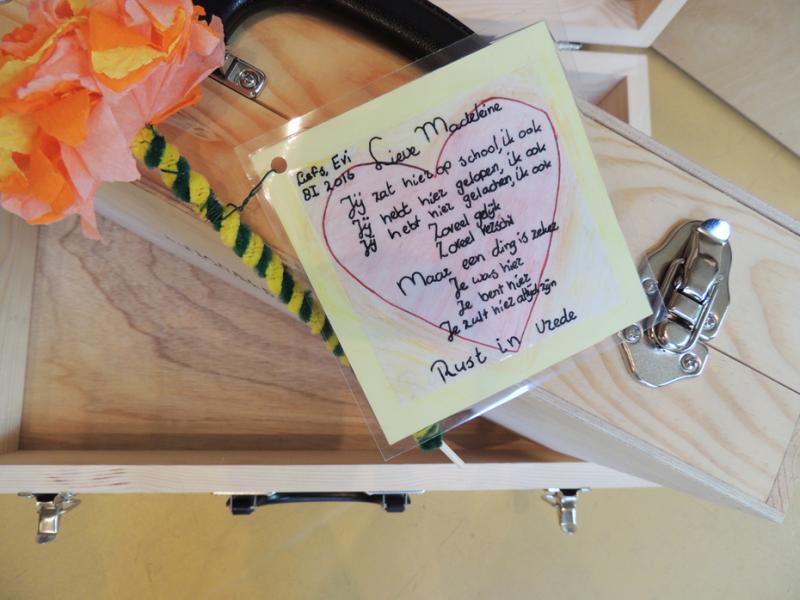 Liefs, Evi
8I 2016
Lieve Madeleine
Jij zat hier op school, ik ook
Jij hebt hier gelopen, ik ook
Jij hebt hier gelachen, ik ook
Zoveel gelijk
Zoveel verschil
Maar een ding is zeker
Je was hier
Je bent hier
Je zult hier altijd zijn
Rust in vrede